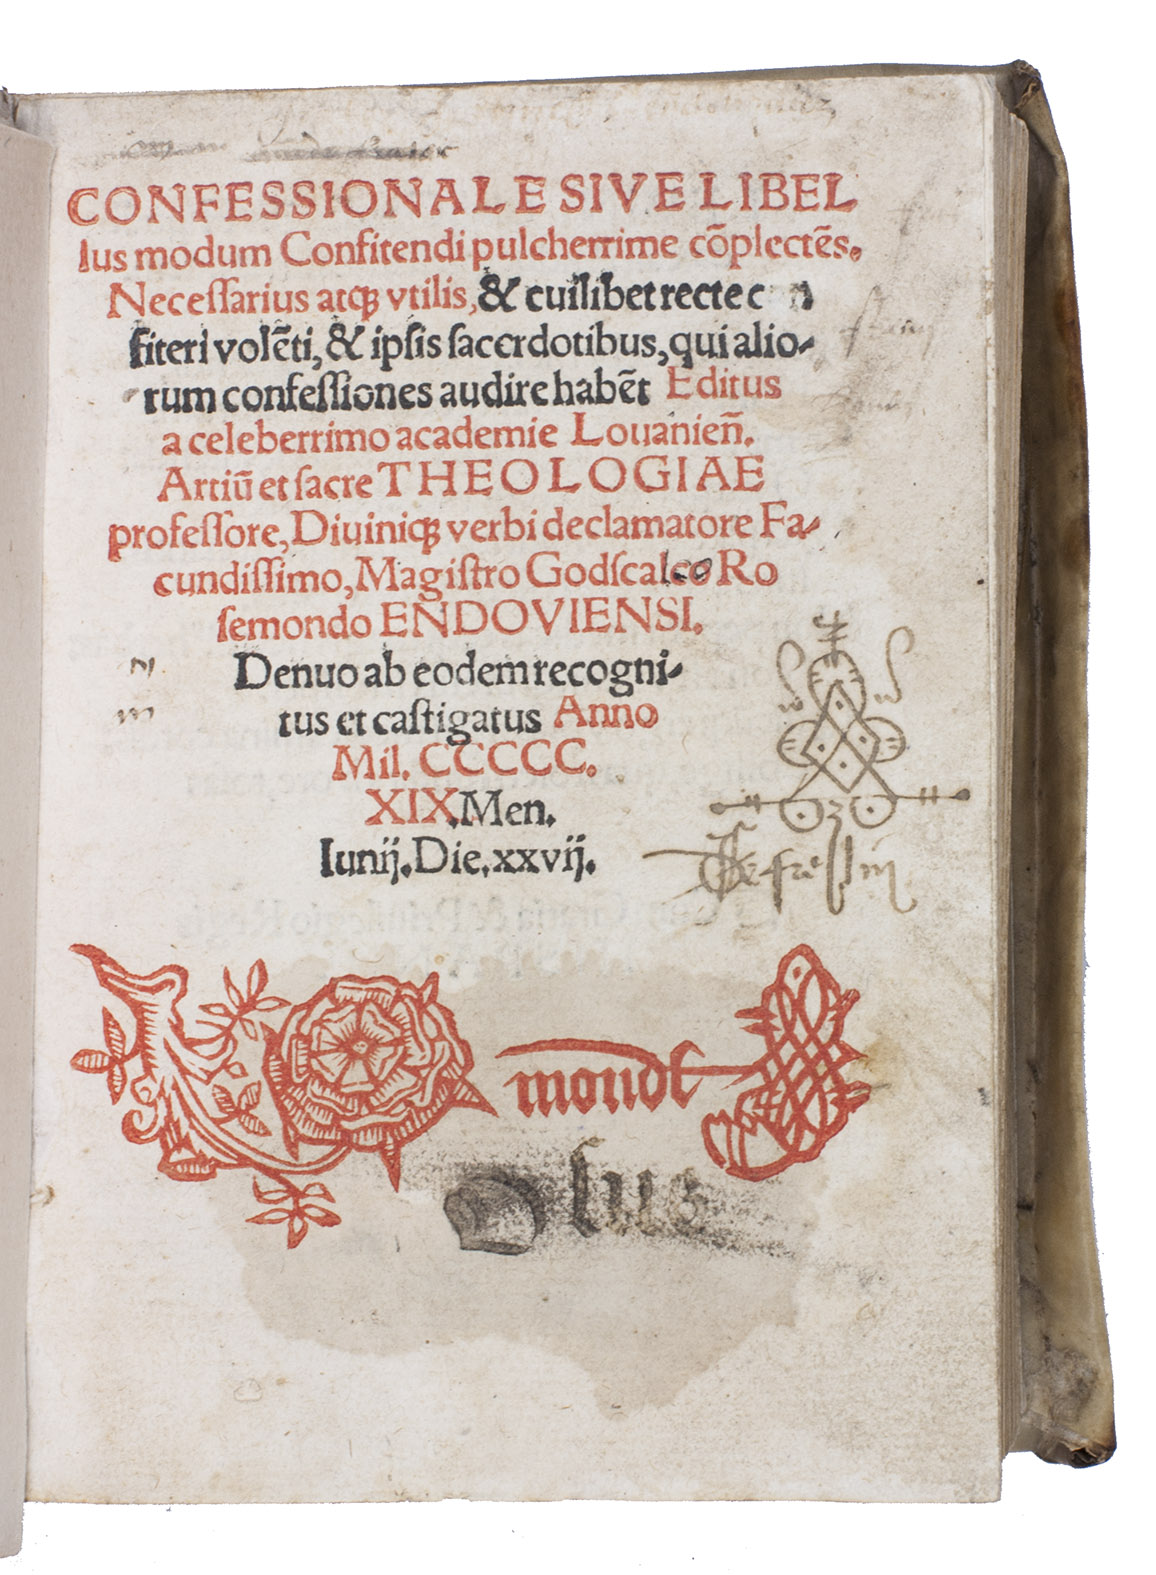 CONFESSIONALE SIVE LIBEL
lus modum Confitendi pulcherrime cõplectẽs.
Necessarius atqꝫ vtilis, & cuilibet recte c n
fiteri volẽti, & ipsis sacerdotibus, qui alio-
rum confessiones audire habẽt Editus
a celeberrimo academie Louanieñ.
Artiũ et sacre THEOLOGIAE
professore, Diuiniqꝫ verbi declamatore Fa-
cundissimo, Magistro Godscalco Ro
semondo ENDOVIENSI.
Denuo ab eodem recogni-
tus et castigatus Anno
Mil. CCCCC.
XIX. Men.
Iunij. Die. xxvij.
mondt